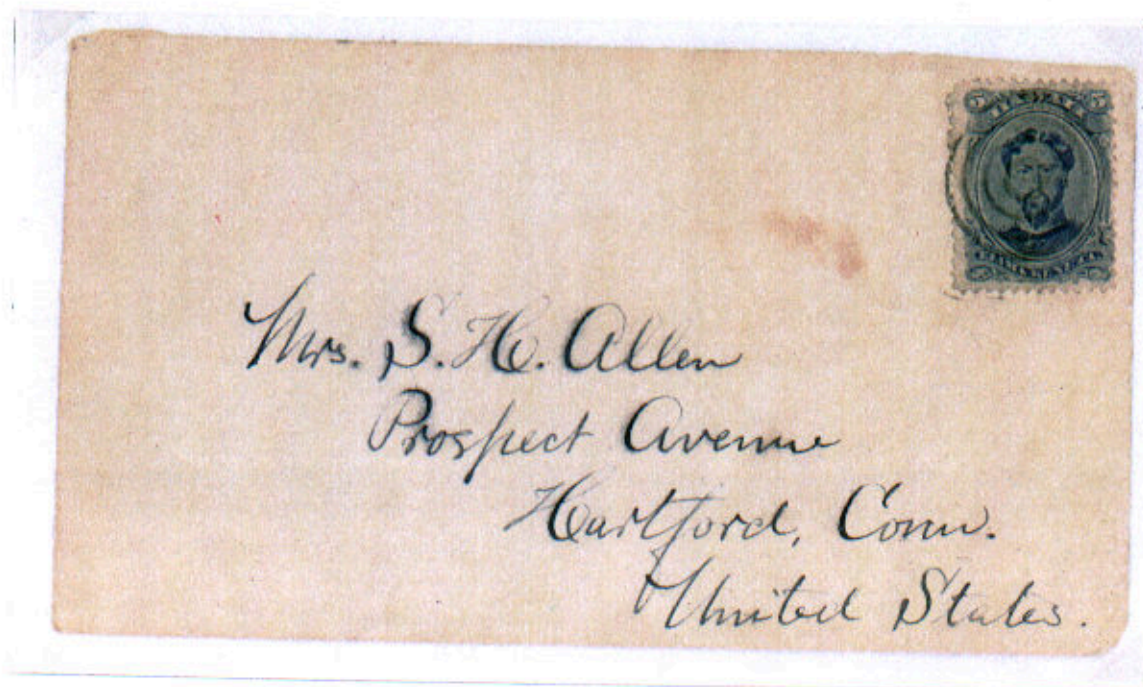 Mrs. S. H. Allen
Prospect Avenue
Hartford, Conn.
United States.
5 5